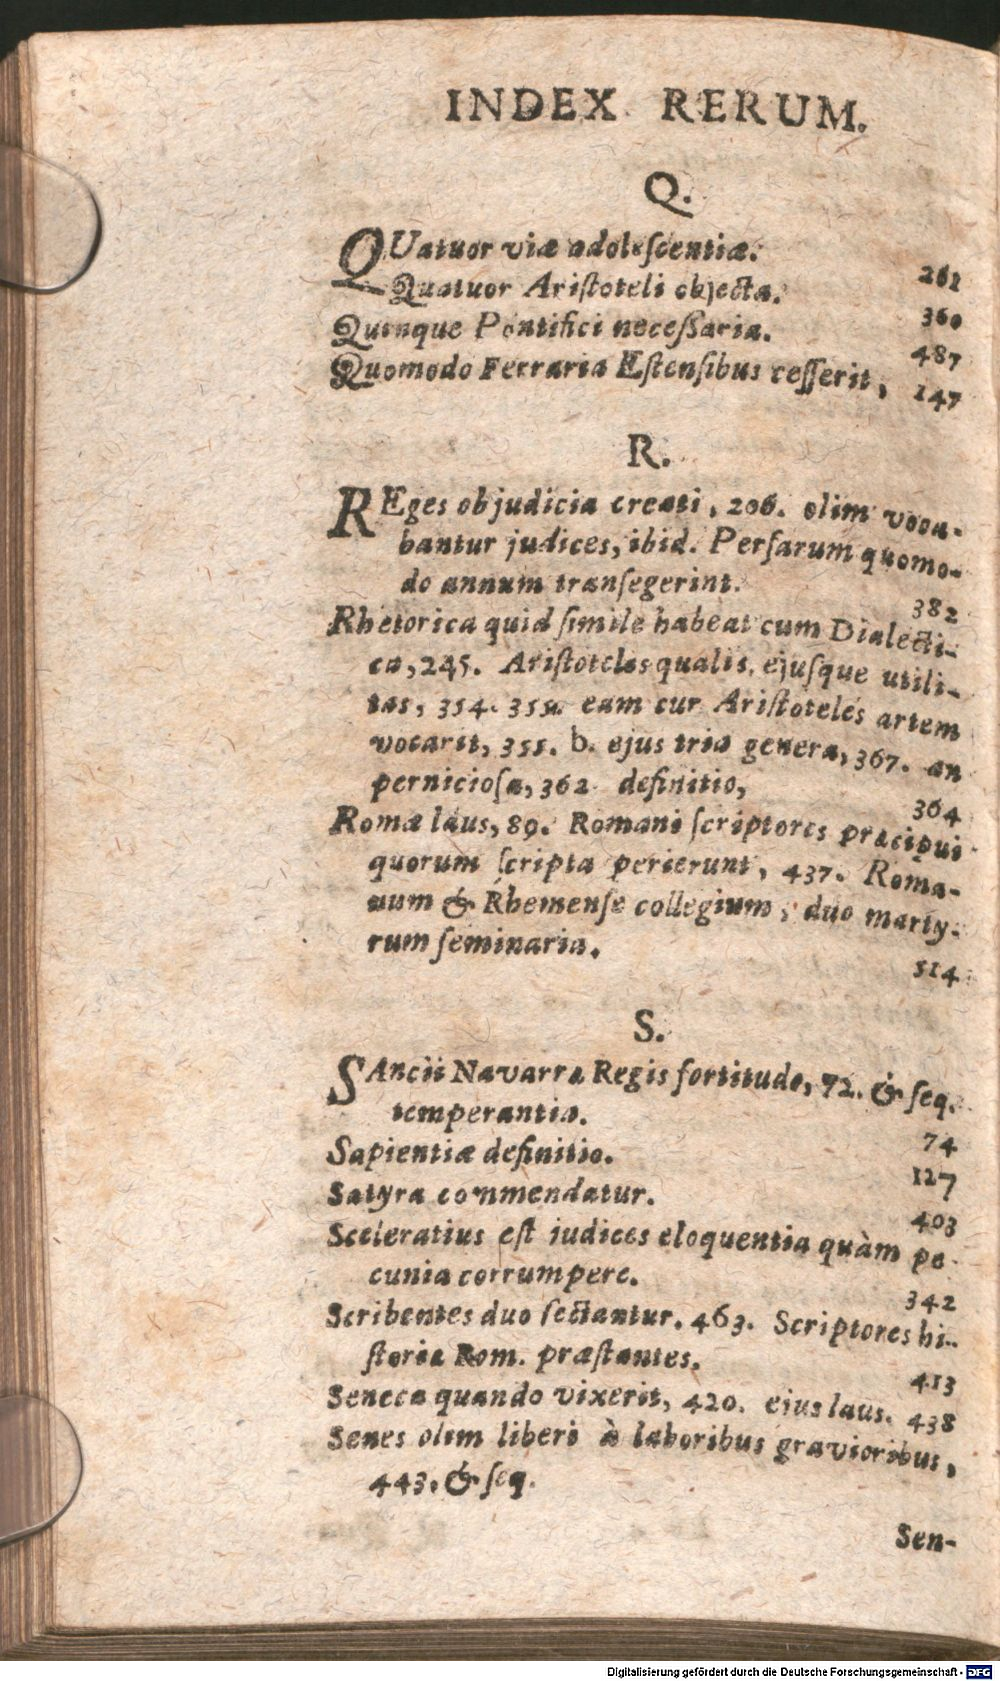 INDEX RERUM.
Q.
QUatuor viæ adolescentiæ. 261
Quatuor Aristoteli objecta. 360
Quinque Pontifici necessaria. 487
Quomodo Ferraria Estensibus cesserit, 147
R.
REges ob judicia creati, 206. olim voca-
bantur judices, ibid. Persarum quomo-
do annum transegerint. 382
Rhetorica quid simile habeat cum Dialecti-
ca, 245. Aristoteles qualis, ejusque utili-
tas, 354. eam cur Aristoteles artem
vocarit, 355. b. ejus tria genera, 367. an
perniciosa, 362 definitio, 364
Romæ laus, 89. Romani scriptores præcipui
quorum scripta perierunt, 437. Roma-
num & Rhemense collegium, duo marty-
rum seminaria. 514
S.
SAncii Navarra Regis fortitudo, 72. & seq.
temperantia. 74
Sapientiæ definitio. 127
Satyra commendatur. 403
Sceleratius est judices eloquentia quàm pe-
cunia corrumpere. 342
Scribentes duo sectantur. 463. Scriptores hi-
storiæ Rom. præstantes. 413
Seneca quando vixerit, 420. ejus laus. 438
Senes olim liberi à laboribus gravioribus,
443. & seq.
Sen-
Digitalisierung gefördert durch die Deutsche Forschungsgemeinschaft - DFG